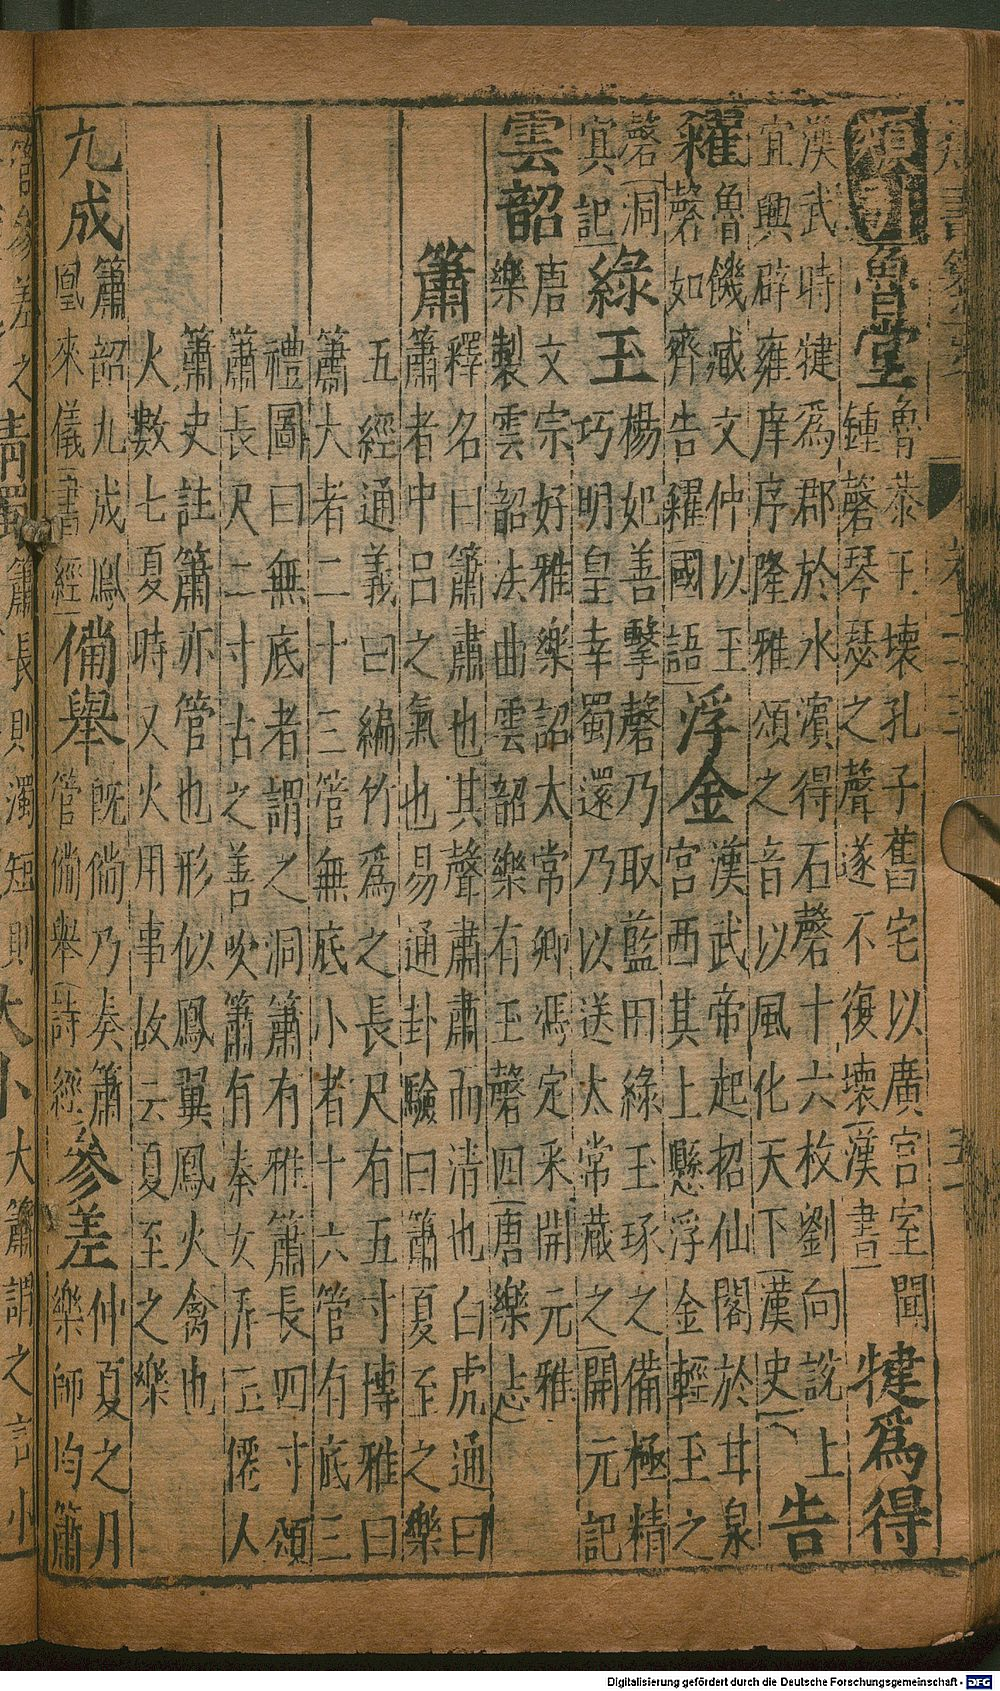 魯堂
魯恭王壞孔子舊宅以廣宮室聞
鍾磬琴瑟之聲遂不復壞漢書
犍為得
漢武時犍為郡於水濱得石磬十六枚劉向說上
宜興辟雍庠序隆雅頌之音以風化天下漢史
告
糴
魯饑臧文仲以玉
磬如齊告糴國語
浮金
漢武帝起招仙閣於甘泉
宮西其上懸浮金輕玉之
磬洞
冥記
綠玉
楊妃善擊磬乃取藍田綠玉琢之備極精
巧明皇幸蜀還乃以送太常藏之開元記
雲韶
唐文宗好雅樂詔太常卿馮定采開元雅
樂製雲韶法曲雲韶樂有玉磬四唐樂志
簫
釋名曰簫肅也其聲肅肅而清也白虎通曰
簫者中呂之氣也易通卦驗曰簫夏至之樂
五經通義曰編竹為之長尺有五寸博雅曰
簫大者二十三管無底小者十六管有底三
禮圖曰無底者謂之洞簫有雅簫長四寸頌
簫長尺二寸古之善吹簫有秦女弄玉僊人
簫史註簫亦管也形似鳳翼鳳火禽也
火數七夏時又火用事故云夏至之樂
九成
簫韶九成鳳
凰來儀書經
備舉
既備乃奏簫
管備舉詩經
參差
仲夏之月
樂師均簫
管參差之
清濁
簫長則濁短則
大小
大簫謂之言小